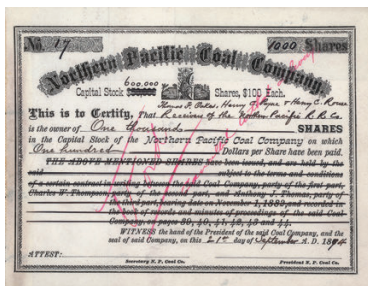 No. 17 1000 Shares
Northern Pacific Coal Company.
600,000
Capital Stock Shares, $100 Each.
Thomas F. Oakes, Henry C. Payne & Henry C. Rouse
This is to Certify, That Receivers of the Northern Pacific R R Co.
is the owner of One thousand SHARES
in the Capital Stock of the Northern Pacific Coal Company on which
One hundred Dollars per Share have been paid.
THE ABOVE MENTIONED SHARES have been issued, and are held by the
said subject to the terms and conditions
of a certain contract in writing between the said Coal Company, party of the first part,
Charles W. Thompson party of the second part, and Anthony J. Thomas, party of
the third part, bearing date on November 1, 1882, and recorded in
the book of records and minutes of proceedings of the said Coal
Company, at pages 39, 40, 41, 42, 43 and 44.
WITNESS the hand of the President of the said Company, and the
seal of said Company, on this 21st day of September A. D. 1894
ATTEST:
Secretary N. P. Coal Co. President N. P. Coal Co.